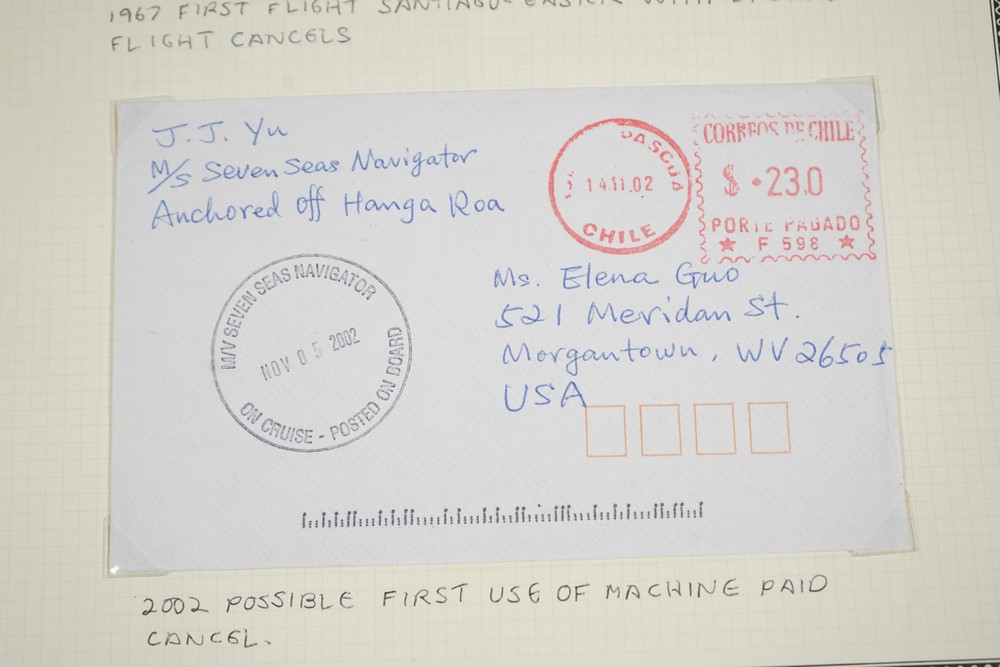 1967 FIRST FLIGHT SANTIAGO-EASTER WITH
FLIGHT CANCELS
J. J. Yu
M/S Seven Seas Navigator
Anchored off Hanga Roa
PASCUA
14.11.02
CHILE
CORREOS DE CHILE
$ •230
PORTE PAGADO
★ F 598 ★
M/V SEVEN SEAS NAVIGATOR
NOV 05 2002
ON CRUISE - POSTED ON BOARD
Ms. Elena Guo
521 Meridan St.
Morgantown, WV 26505
USA
2002 POSSIBLE FIRST USE OF MACHINE PAID
CANCEL.